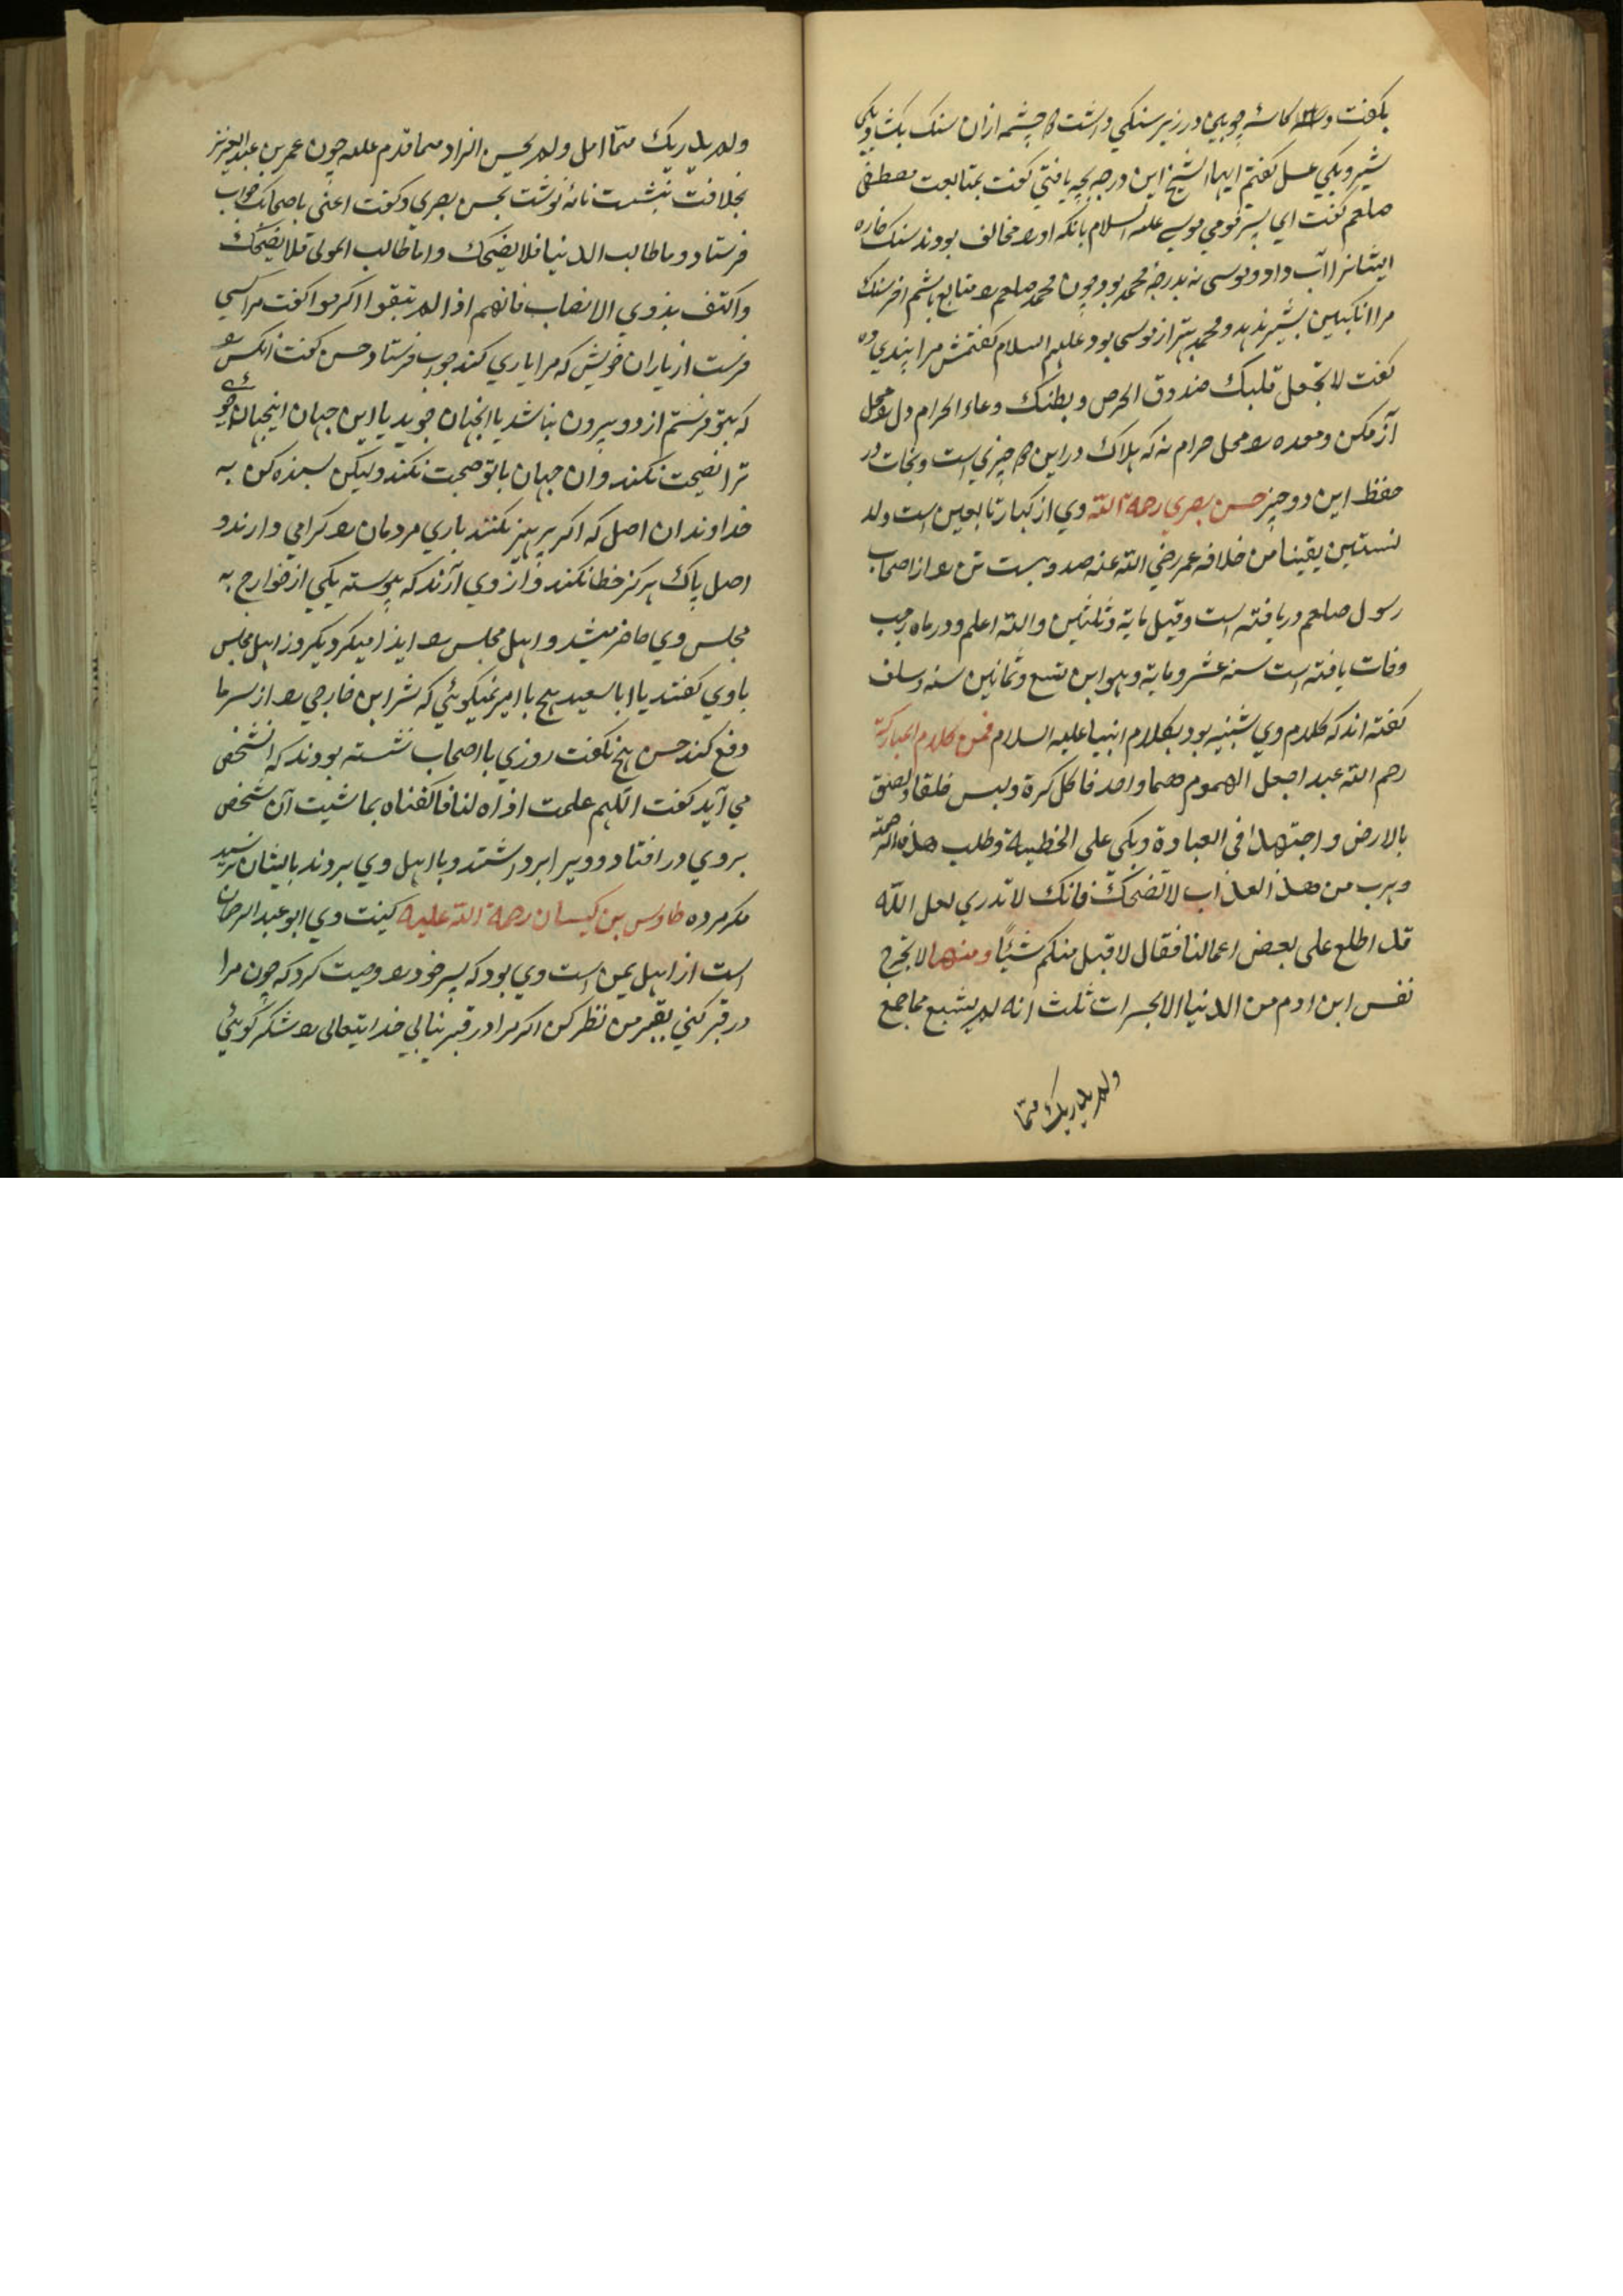 بکفت و کاسهٔ چوبین در زیر سنکی داشت دو چشمه ازان سنک بکشاد یکی
شیر و یکی عسل کفتم ایها الشیخ این درجه بچه یافتی کفت بمتابعت مصطفی
صلعم کفت ای پسر قومی موسی علیه السلام بانکه اورا مخالف بودند سنک خاره
ایشانرا آب داد و موسی نه بدرجهٔ محمد بود چون محمد صلعم را متابع باشم اخر سنک
مرا انکبین بشیر ندهد و محمد بهتر از موسی بود علیهم السلام کفتمش مرا پندی ده
کفت لا تجعل قلبک صندوق الحرص و بطنک وعاء الحرام دل را محل
آز مکن و معده را محل حرام نه که هلاک در این دو چیزی است و نجات در
حفظ این دو چیز حسن بصری رحمة الله وی از کبار تابعین است ولد
لسنتین یقینا من خلافه عمر رضی الله عنه صد و بیست تن را از اصحاب
رسول صلعم دریافته است وقیل مایة وثلثین والله اعلم و در ماه رجب
وفات یافته است سنه عشر و مایة وهو ابن تسع وثمانین سنه و سلف
کفته اند که کلام وی شبیه بود بکلام انبیا علیه السلام فمن کلام المبارکة
رحم الله عبد اجعل الهموم هما واحد فاکل کسرة ولبس خلقا ولصق
بالارض واجتهد فی العبادة وبکی علی الخطیة وطلب هذه الرحمة
وهرب من هذ العذاب لا تضحک فانک لا تدری لعل الله
قد اطلع علی بعض اعمالنا فقال لا قبل منکم شیًا ومنها لا تخرج
نفس ابن ادم من الدنیا الا بحسرات ثلث انه لم یشبع مما جمع
ولم یدریک متما
ولم یدریک متما امل ولم یحسن الزاد مما قدم علیه چون عمر بن عبد العزیز
بخلافت بنشست نامهٔ نوشت بحسن بصری و کفت اعنی باصحابک جواب
فرستاد و ما طالب الدنیا فلا ینصحک واما طالب المولی فلا یصحبک
واکتف بذوی الانصاب فانهم اذا لم یتقوا اکرموا کفت مرا کسی
فرست از یاران خویش که مرا یاری کند جواب فرستاد حسن کفت انکس را
که بتو فرستم از دو بیرون نباشد یا انجهان جوید یا این جهان اینجهان جوی
ترا نصیحت نکند و ان جهان با تو صحبت نکند ولیکن بسنده کن به
خداوندان اصل که اکر پرهیز نکنند باری مردمان را کرامی دارند و
اصل پاک هرکز خطا نکند و از وی آرند که پیوسته یکی از خوارج به
مجلس وی حاضر میشد و اهل مجلس را ایذا میکرد یکروز اهل مجلس
با وی کفتند یا ابا سعید هیچ با امیر نمیکوئی که شر این خارجی را از سر ما
دفع کند حسن هیچ نکفت روزی با اصحاب نشسته بودند که انشخص
می آید کفت اللهم علمت اذاه لنا فاکفناه بما شیت آن شخص
بر وی در افتاد و ویرا برداشتند و با اهل وی بردند بایشان نرسید
مکر مرده طاوس بن کیسان رحمة الله علیه کنیت وی ابو عبد الرحمان
است از اهل یمن است وی بود که پسر خود را وصیت کرد که چون مرا
در قبر کنی بقبر من نظر کن اکر مرا در قبر نیابی خدایتعالی را شکر کوئی